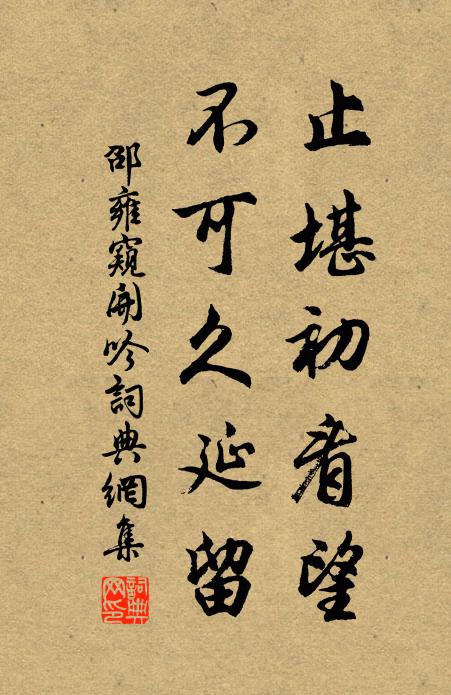 止堪初看望
不可久延留
邵雍窺開吟詞典網集
詞典網印